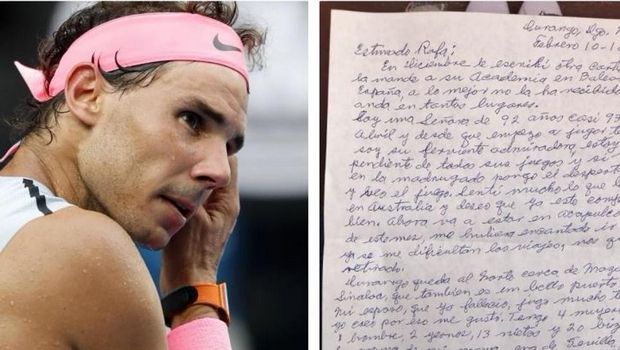 Durango, Dgo.
Febrero 10-1
Estimado Rafa:
En Diciembre le escribí otra carta
la mande a su Academia en Balea
España, a lo mejor no la ha recibido
anda en tantos lugares.
Soy una Señora de 92 años casi 93
Abril y desde que empezo a jugar te
soy su ferviente admiradora estoy
pendiente de todos sus juegos y si
en la madrugada pongo el desperta
y veo el juego. Sentí mucho lo que l
en Australia y deseo que ya este comp
bien. Ahora va a estar en Acapulco
de estemes, me hubiera encantado ir
ya se me dificultan los viajes, nos qu
retirado.
Durango queda al Norte cerca de Maza
Sinaloa, que tambien es un bello puerto
Mi esposo, que ya fallecio, jugo mucho te
yo creo por eso me gustó. Tengo 4 mujere
1 hombre, 2 yernos, 13 nietos y 20 biz